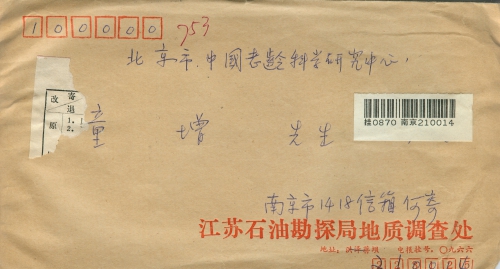 100000
753
北京市,中國老龄科学研究中心,
寄
退
1.
2.
改
原
童 增 先生
挂0870 南京210014
南京市1418信箱何寄
江苏石油勘探局地质调查处
地址:洪泽蒋坝 电报挂号:〇九六六